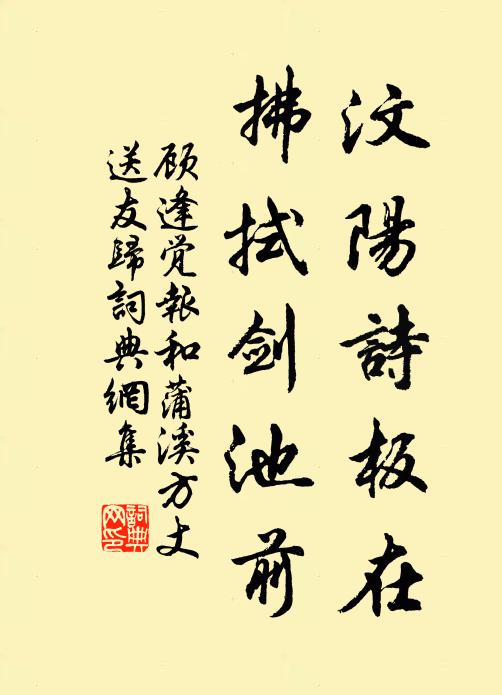 汶陽詩板在
拂拭劍池前
顾逢觉報和蒲溪方丈
送友歸詞典網集
詞典
网印